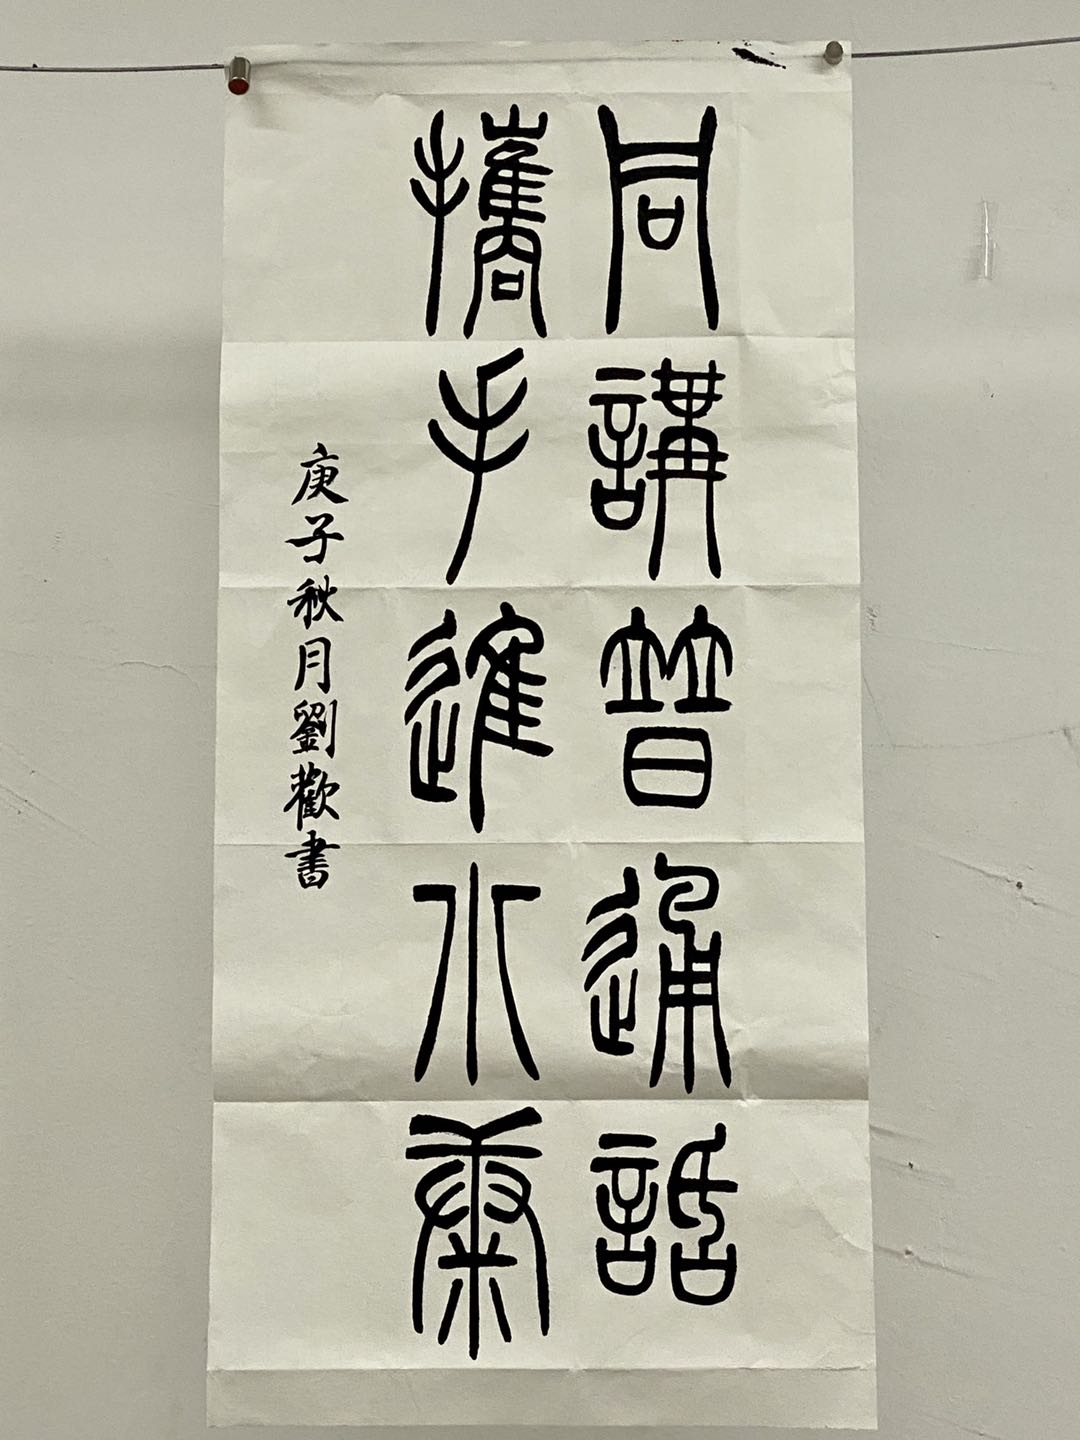 同講普通話
攜手進小康
庚子秋月劉歡書